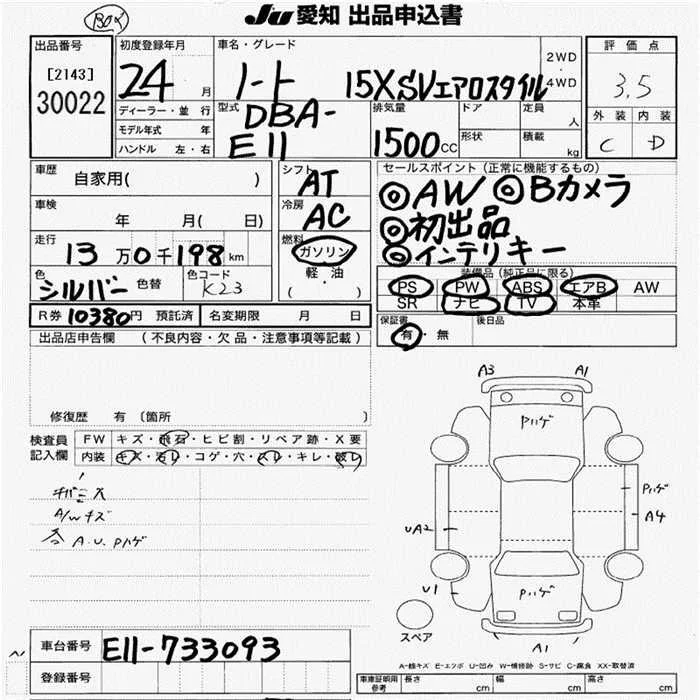 Ju 愛知 出品申込書
出品番号
[2143]
30022
初度登録年月
24 月
車名・グレード
ノート 15XSVエアロスタイル
2WD・4WD
評価点
3.5
外装 内装
C D
ディーラー・並行
モデル年式 年
ハンドル 左・右
型式
DBA-
E11
排気量
1500cc
ドア
形状
定員 人
積載 kg
車歴
自家用( )
車検
年 月( 日)
走行
13万0千198km
色
シルバー 色替
色コード
K23
シフト
AT
冷房
AC
燃料
ガソリン
軽・油
( ・ )
セールスポイント(正常に機能するもの)
◎AW ◎Bカメラ
◎初出品
◎インテリキー
装備品(純正品に限る)
PS PW ABS エアB AW
SR ナビ TV 本革
R券 10380円 預託済 名変期限 月 日
保証書
有・無
後日品
出品店申告欄 (不良内容・欠品・注意事項等記載)
修復歴 有〔箇所 〕
検査員記入欄
FW キズ・飛石・ヒビ割・リペア跡・X要
内装 キズ・汚レ・コゲ・穴・スレ・キレ・破レ
A/Wキズ
各 A.U. Pハゲ
A3 A1
Pハゲ
Pハゲ
A4
UA2
U1
Pハゲ
A1
スペア
A-線キズ E-エクボ U-凹み W-補修跡 S-サビ C-腐食 XX-取替済
車台番号 E11-733093
登録番号
車庫証明用参考 長さ cm 幅 cm 高さ cm